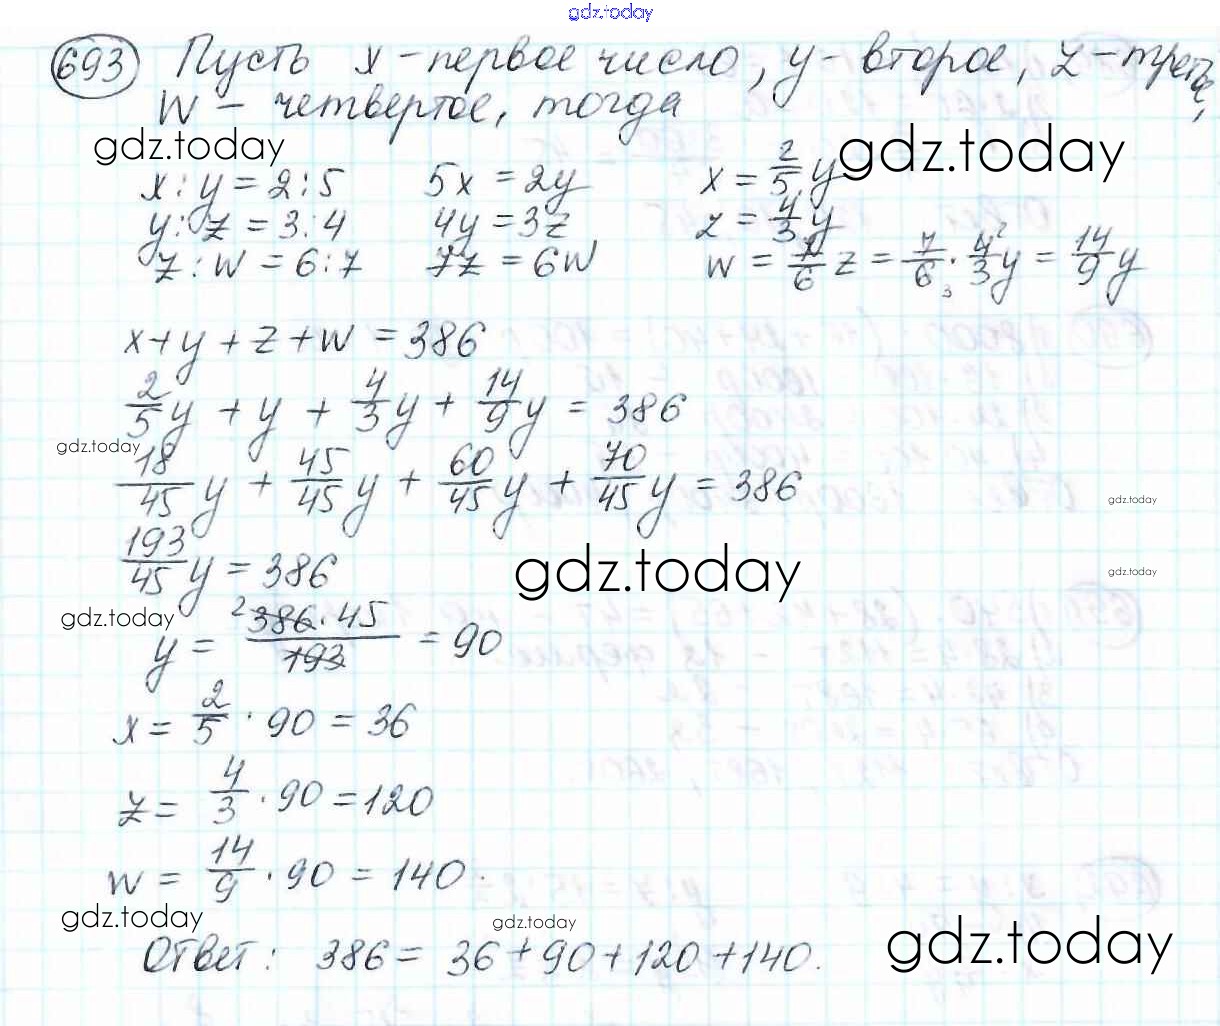 gdz.today
693 Пусть x - первое число, y - второе, z - третье,
w - четвертое, тогда
gdz.today gdz.today
x : y = 2 : 5 5x = 2y x = 2/5 y
y : z = 3 : 4 4y = 3z z = 4/3 y
z : w = 6 : 7 7z = 6w w = 7/6 z = 7/6 · 4/3 y = 14/9 y
x + y + z + w = 386
2/5 y + y + 4/3 y + 14/9 y = 386
gdz.today
18/45 y + 45/45 y + 60/45 y + 70/45 y = 386
gdz.today
193/45 y = 386
gdz.today
gdz.today
gdz.today
y = 386 · 45 / 193 = 90
x = 2/5 · 90 = 36
z = 4/3 · 90 = 120
w = 14/9 · 90 = 140.
gdz.today gdz.today gdz.today
Ответ: 386 = 36 + 90 + 120 + 140.